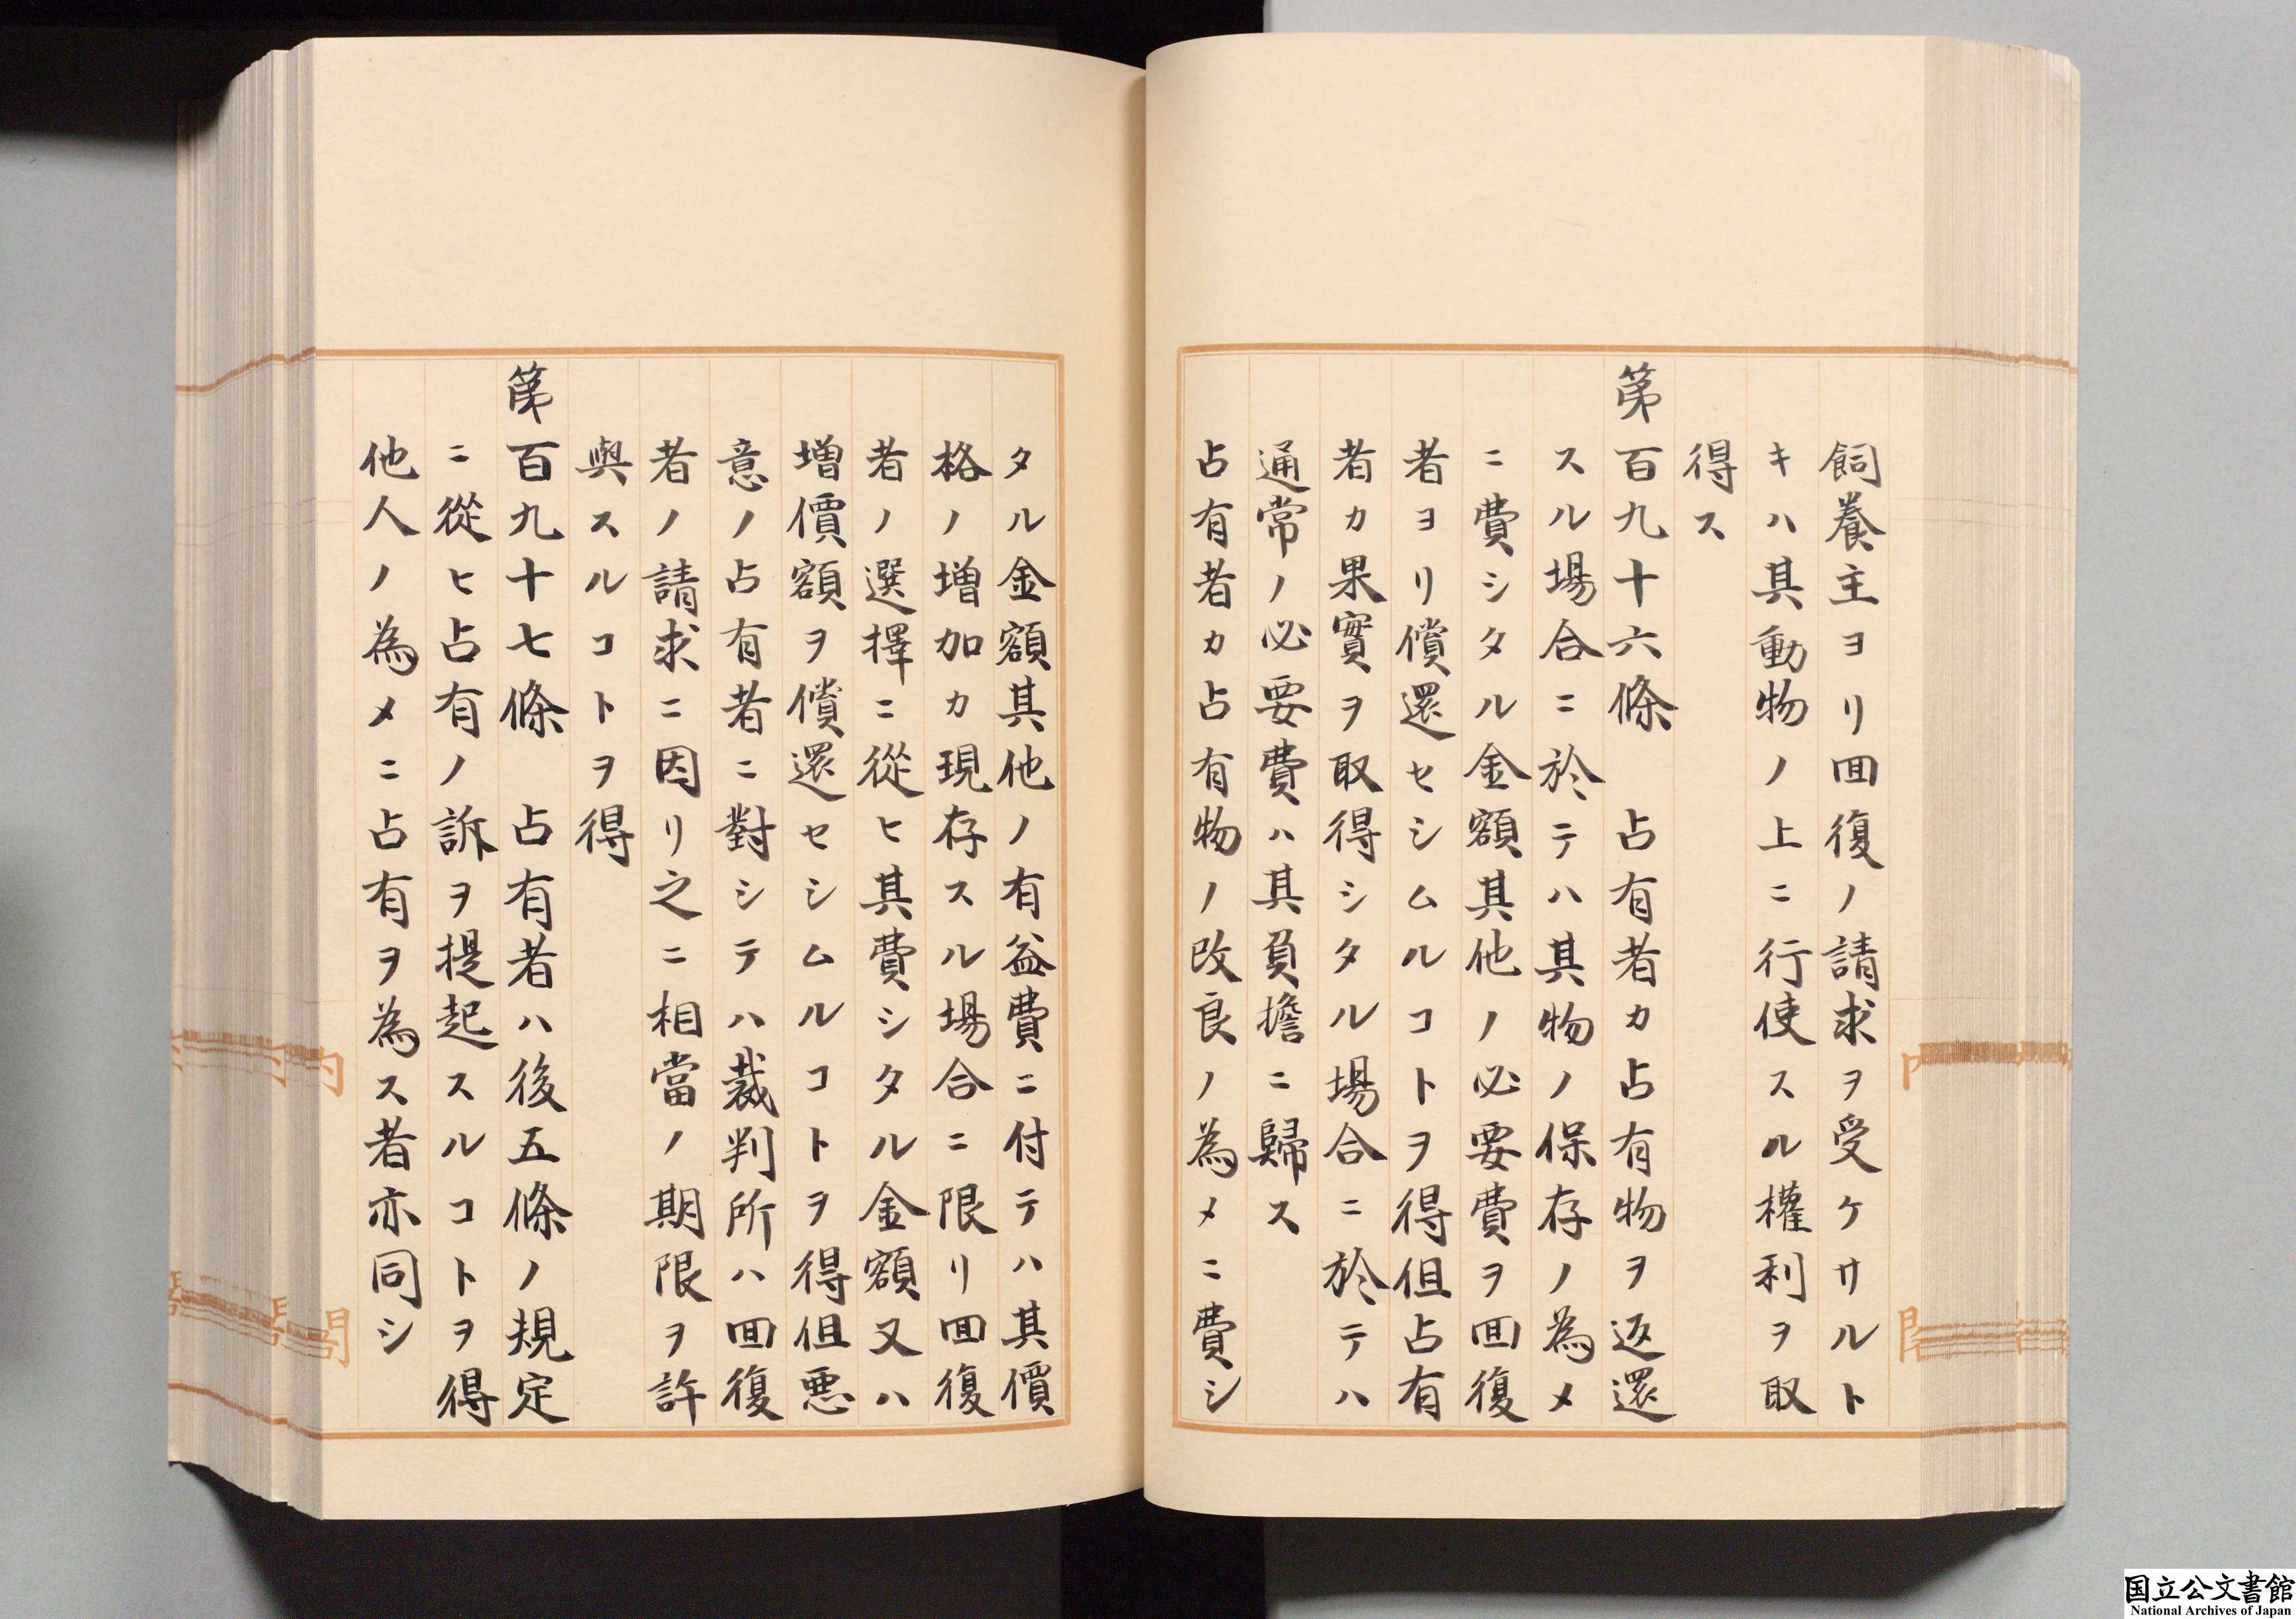 飼養主ヨリ囘復ノ請求ヲ受ケサルト
キハ其動物ノ上ニ行使スル權利ヲ取
得ス
第百九十六條　占有者カ占有物ヲ返還
スル場合ニ於テハ其物ノ保存ノ為メ
ニ費シタル金額其他ノ必要費ヲ囘復
者ヨリ償還セシムルコトヲ得但占有
者カ果實ヲ取得シタル場合ニ於テハ
通常ノ必要費ハ其負擔ニ歸ス
占有者カ占有物ノ改良ノ為メニ費シ
タル金額其他ノ有益費ニ付テハ其價
格ノ増加カ現存スル場合ニ限リ囘復
者ノ選擇ニ從ヒ其費シタル金額又ハ
増價額ヲ償還セシムルコトヲ得但悪
意ノ占有者ニ對シテハ裁判所ハ囘復
者ノ請求ニ因リ之ニ相當ノ期限ヲ許
與スルコトヲ得
第百九十七條　占有者ハ後五條ノ規定
ニ從ヒ占有ノ訴ヲ提起スルコトヲ得
他人ノ為メニ占有ヲ為ス者亦同シ
国立公文書館
National Archives of Japan